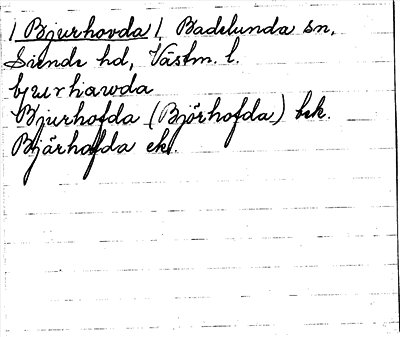 / Bjurhovda /, Badelunda sn,
Siende hd, Västm. l.
bjurhawda
Bjurhofda (Björhofda) bsk.
Bjärhofda ek.